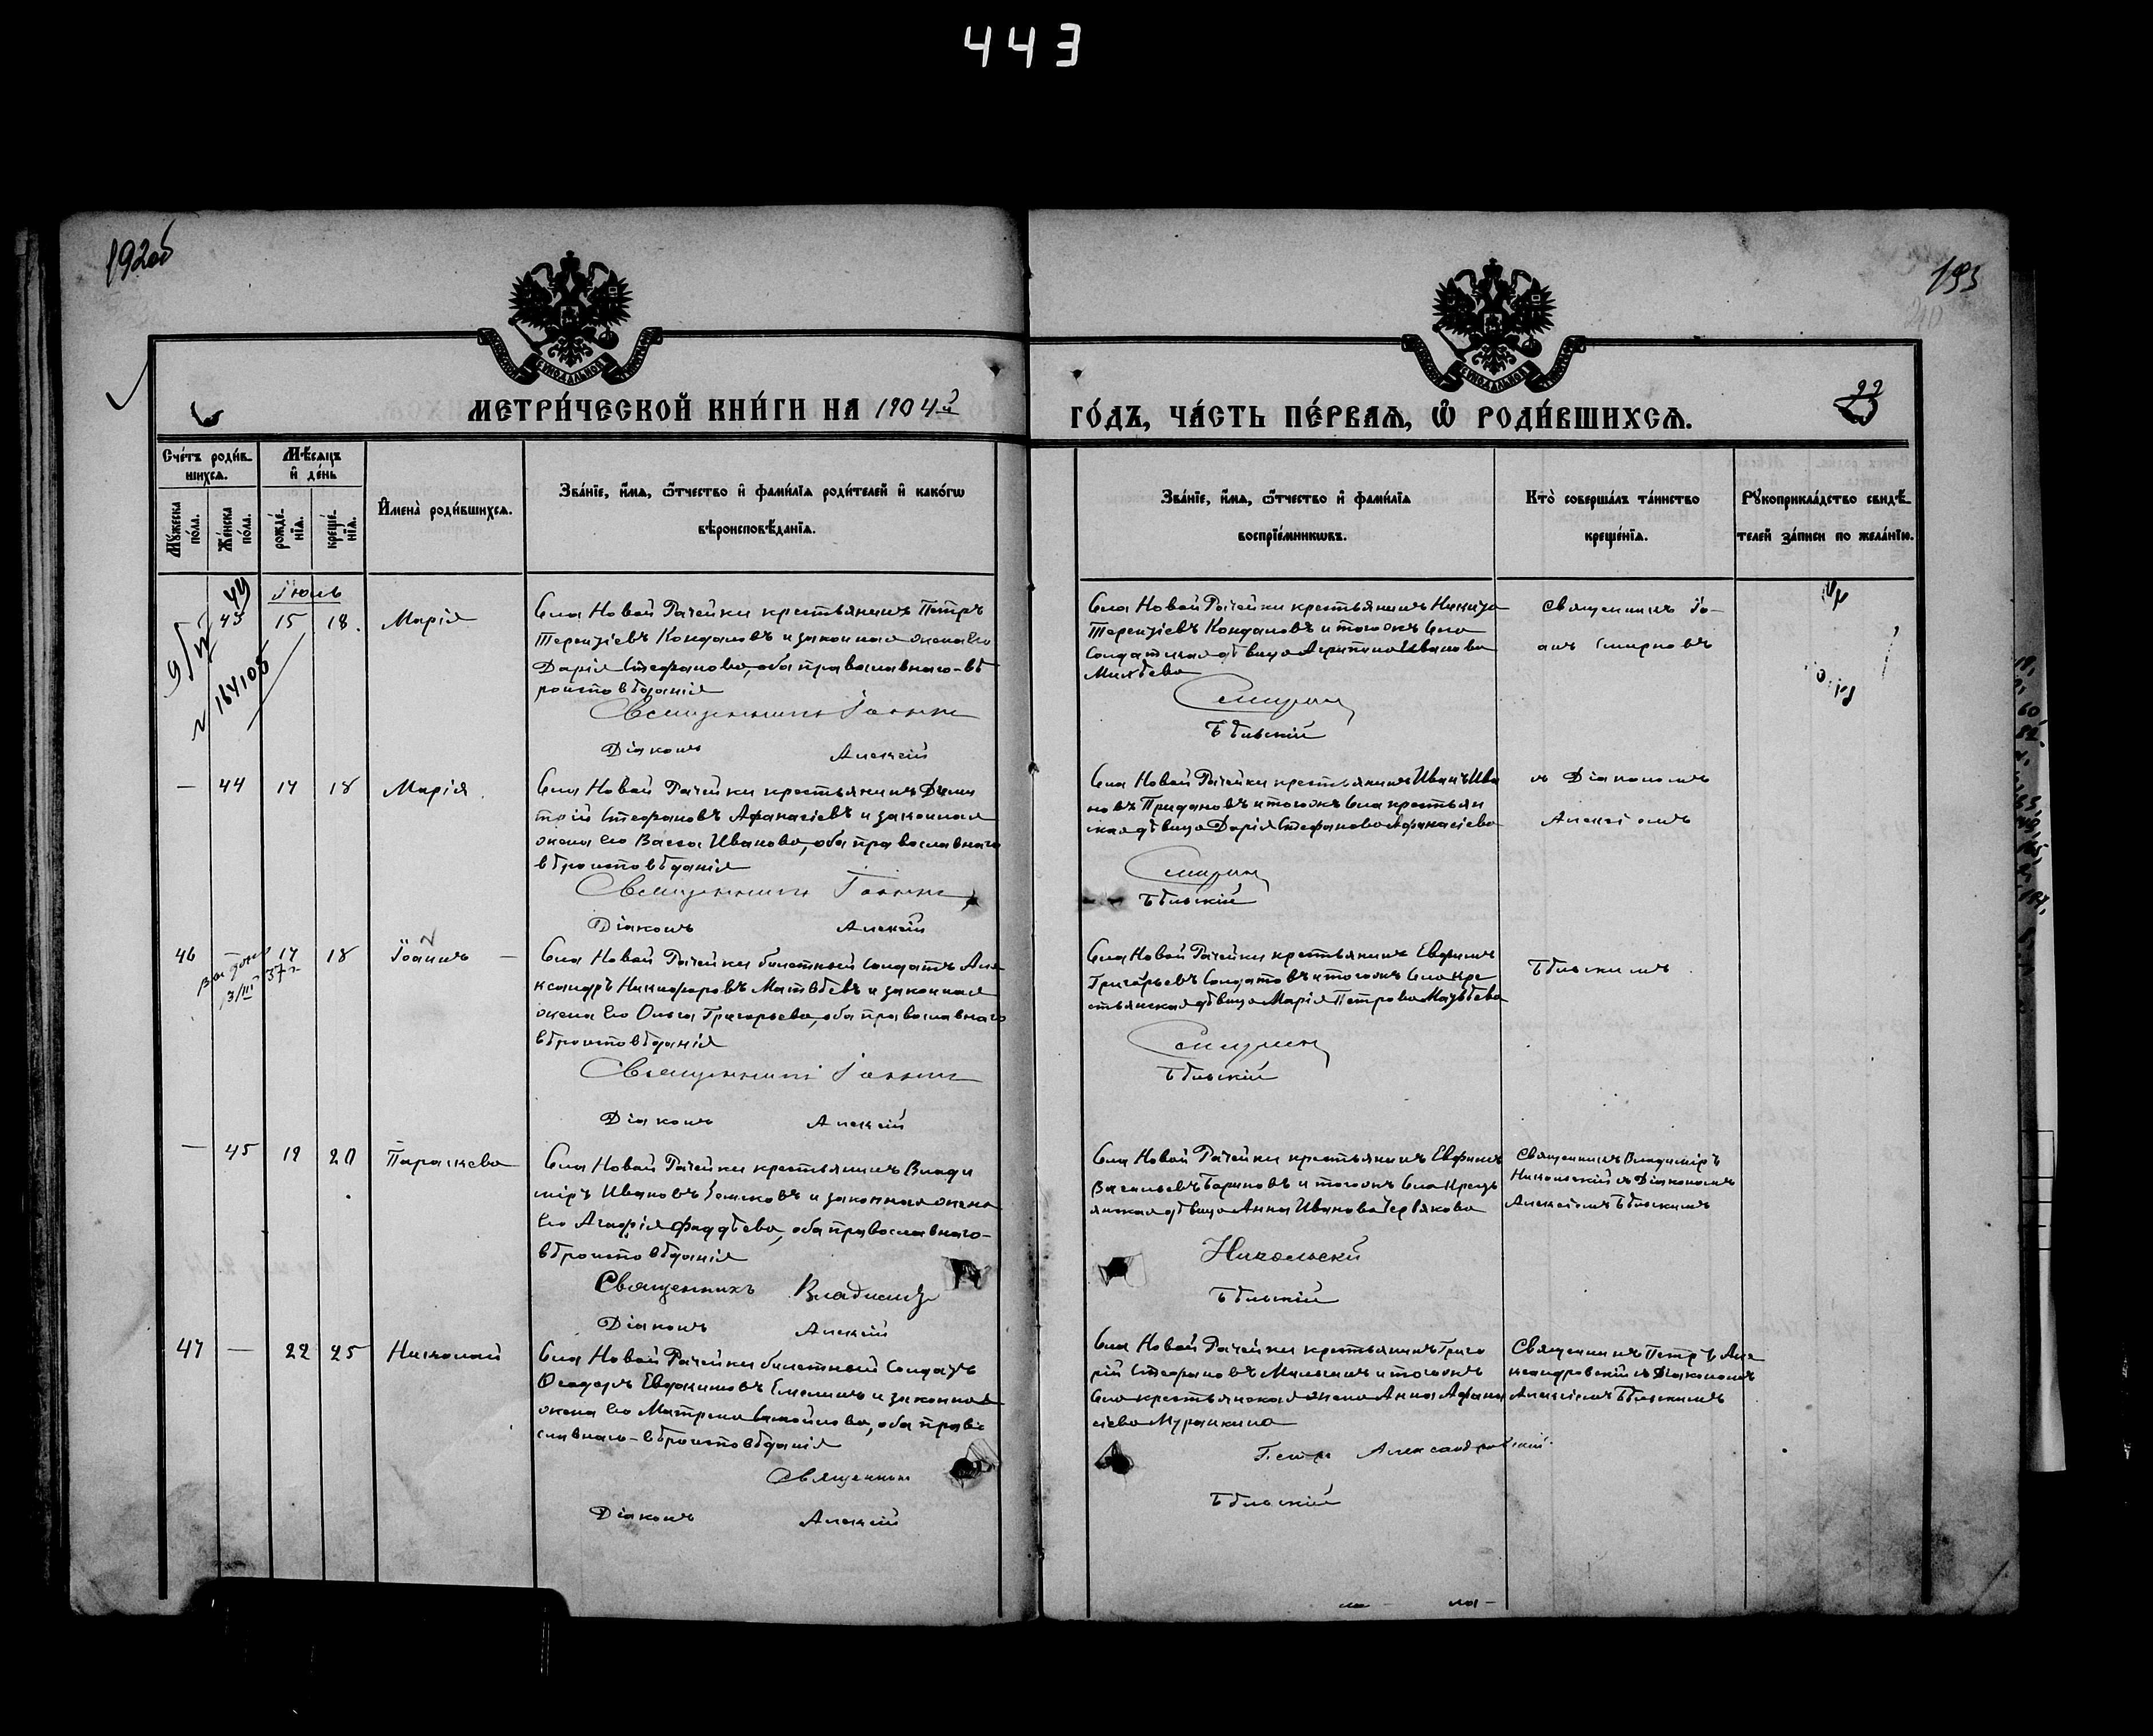 443
192об
193
22
МЕТРИ́ЧЕСКОЙ КНИ́ГИ НА 1904й
ГО́ДЪ, ЧА́СТЬ ПЕ́РВАѦ, Ѽ РОДИ́ВШИХСѦ.
Сче́тъ роди́в-
шихсѧ.
Мѣ́сѧцъ
и҆ де́нь
Мꙋ́жеска
по́ла.
Же́нска
по́ла.
рожде́-
нїѧ.
креще́-
нїѧ.
И҆мена̀ роди́вшихсѧ.
Зва́нїе, и҆́мѧ, ѻ҆́тчество и҆ фами́лїѧ роди́телей и҆ како́гѡ
вѣроисповѣ́данїѧ.
Зва́нїе, и҆́мѧ, ѻ҆́тчество и҆ фами́лїѧ
воспрїе́мникѡвъ.
Кто̀ соверша́лъ та́инство
креще́нїѧ.
Рꙋкоприкла́дство свидѣ́-
телей за́писи по жела́нїю.
Іюль
43 15 18. Марія
164105
Села Новой Рачейки крестьянинъ Петръ
Терентіевъ Кондановъ и законная жена его
Дарія Стефанова, оба православнаго вѣ
роисповѣданія
Священникъ Іоаннъ
Діаконъ Алексій
Села Новой Рачейки крестьянинъ Никита
Терентіевъ Кондановъ и тогожъ села
солдатская дѣвица Агрипина Иванова
Михѣева
Смирнов
Бѣльскій
Священникъ Іо-
аннъ Смирновъ
— 44 17 18 Марія
Села Новой Рачейки крестьянинъ Дими
трій Стефановъ Афанасіевъ и законная
жена его Васса Иванова, оба православнаго
вѣроисповѣданія
Священникъ Іоаннъ
Діаконъ Алексій
Села Новой Рачейки крестьянинъ Иванъ Ива
новъ Придановъ и тогожъ села крестьян
ская дѣвица Дарія Стефанова Афанасіева
Смирнов
Бѣльскій
съ Діакономъ
Алексіемъ
46 17 18 Іоаннъ
3/III 37 г
Села Новой Рачейки билетный солдатъ Але
ксандръ Никифоровъ Матвѣевъ и законная
жена его Ольга Григорьева, оба православнаго
вѣроисповѣданія
Священникъ Іоаннъ
Діаконъ Алексій
Села Новой Рачейки крестьянинъ Евфимъ
Григорьевъ Солдатовъ и тогожъ села кре
стьянская дѣвица Марія Петрова
Смирнов
Бѣльскій
Бѣльскимъ
— 45 19 20 Параскева
Села Новой Рачейки крестьянинъ Влади
міръ Ивановъ и законная жена
его Агафія Фаддѣева, оба православнаго-
вѣроисповѣданія
Священникъ Владиміръ
Діаконъ Алексій
Села Новой Рачейки крестьянинъ Евфимъ
Васильевъ Бариновъ и тогожъ села крест
янская дѣвица Анна Иванова Червякова
Никольскій
Бѣльскій
Священникъ Владиміръ
Никольскій съ Діакономъ
Алексіемъ Бѣльскимъ
47 — 22 25 Николай
Села Новой Рачейки билетный солдатъ
Ѳеодоръ Евфимовъ Емелинъ и законная
жена его Матрена Самойлова, оба право
славнаго-вѣроисповѣданія
Священник
Діаконъ Алексій
Села Новой Рачейки крестьянинъ Григо
рій Стефановъ и тогожъ
села крестьянская жена Анна Афана
сіева Мурашкина
Петръ Александровскій
Бѣльскій
Священникъ Петръ Але
ксандровскій съ Діакономъ
Алексіемъ Бѣльскимъ